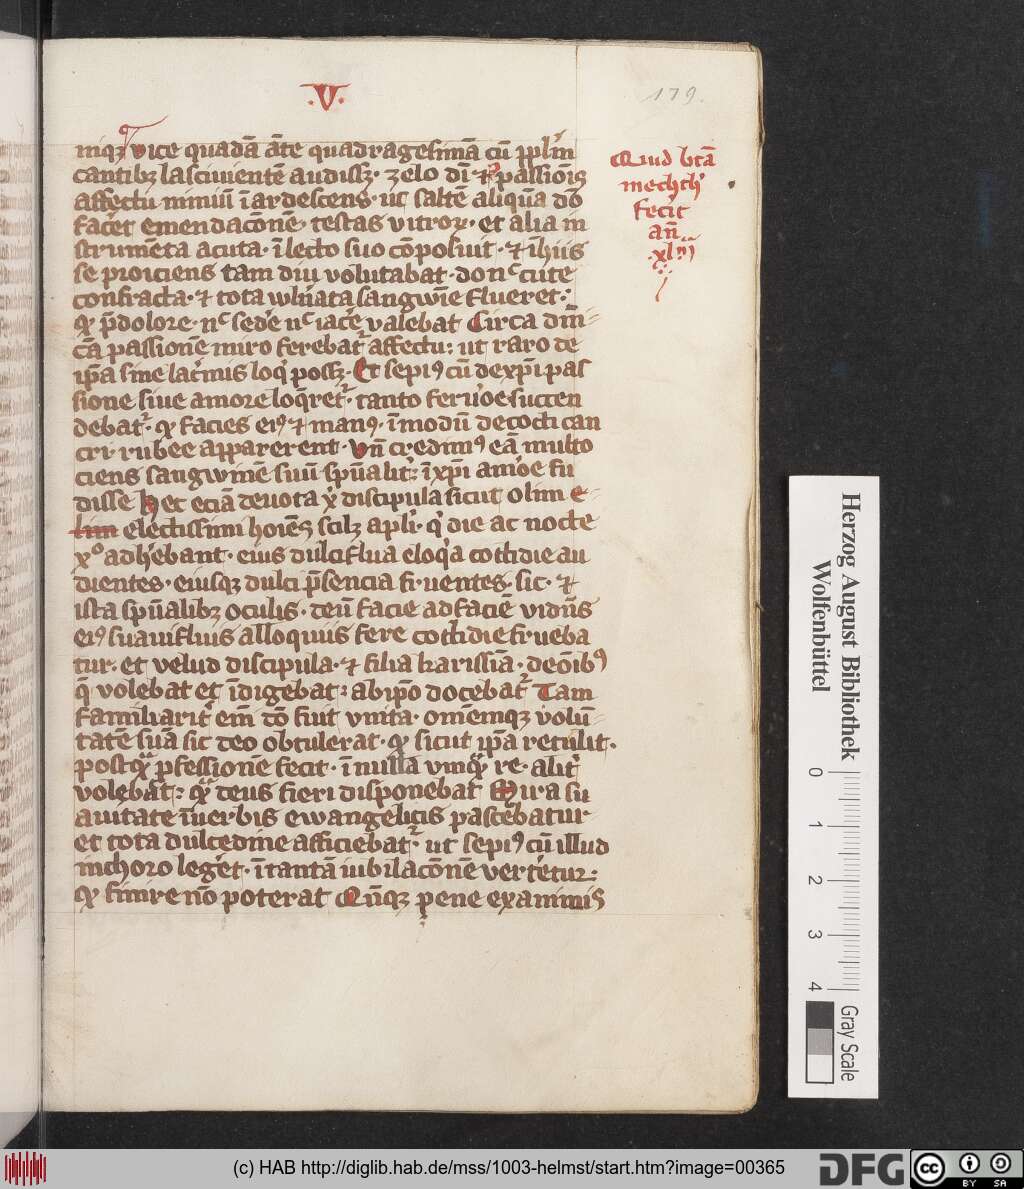 .V.
179.
niqꝫ vice quadā āte quadragesimā cū ꝓplm̄
cantibꝫ lasciuientē audissꝫ · zelo dī ⁊ passiōis
affectu nimiū ī ardescens · ut saltē aliquā dō
facet emendacōnē · testas vitroꝝ · et alia in
strumēta acuta · ī lecto suo cōposuit · ⁊ ī hijs
se proiciens tam diu volutabat · donͨ cute
confracta · ⁊ tota wlnata sangwīe flueret ·
qͦ p̄ dolore · nͨ sede nͨ iacē valebat Circa dn̄i
cā passionē miro ferebat᷑ affectu : ut raro de
ip̄a sine lac̉mis loqͥ possꝫ · Et sepiꝰ cū de xp̄i pas
sione siue amore loq̄ret᷑ · tanto feruōe succen
debat᷑ · qͦ facies eiꝰ ⁊ manꝰ · ī modū decocti can
cri rubee apparerent · vn̄ credimꝰ eā multo
ciens sangwinē suū spūalit̉ : ī xp̄i amōe fu
disse Hec eciā deuota xͥ discipula sicut olim e
lim electissimi hoīes scilꝫ apli · qͥ die ac nocte
xͦ adh̉ebant · eius dulciflua eloqͥa cottidie au
dientes · eiusqꝫ dulci p̄sencia fruentes · sic · ⁊
ista spūalibꝫ oculis · deū facie ad faciē vidēs
eiꝰ suauifluis alloquiis fere cottidie frueba
tur · et velud discipula · ⁊ filia karissīa · de oībꝰ
q̄ volebat et īdigebat : ab ip̄o docebat᷑ Tam
familiarit̉ em̄ dō fuit vnita · omēmqꝫ volū
tatē suā sic deo obtulerat · qͦ sicut ip̄a retulit ·
postqͣꝫ ꝓfessionē fecit · ī nulla vmqͣꝫ re · alit̉
volebat : qͣꝫ deus fieri disponebat Mira su
auitate ī uerbis ewangelicis pascebatur
et tota dulcedine afficiebat᷑ · ut sepiꝰ cū illud
in choro leget · ī tantā iubilacōnē vertetur :
qͦ finire nō poterat Cūqꝫ pene exanimis
Quid btā
mechtͥ
fecit
an̄
.xlᵐ
Herzog August Bibliothek
Wolfenbüttel
0 1 2 3 4
Gray Scale
(c) HAB http://diglib.hab.de/mss/1003-helmst/start.htm?image=00365
DFG
cc BY SA